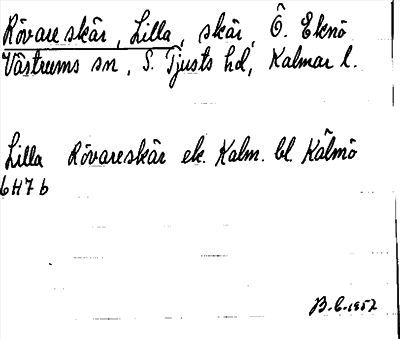 Rövareskär, Lilla, skär, Ö. Eknö
Västrums sn, S. Tjusts hd, Kalmar l.
Lilla Rövareskär ek. Kalm. bl. Kälmö
6H7b
B.C. 1952